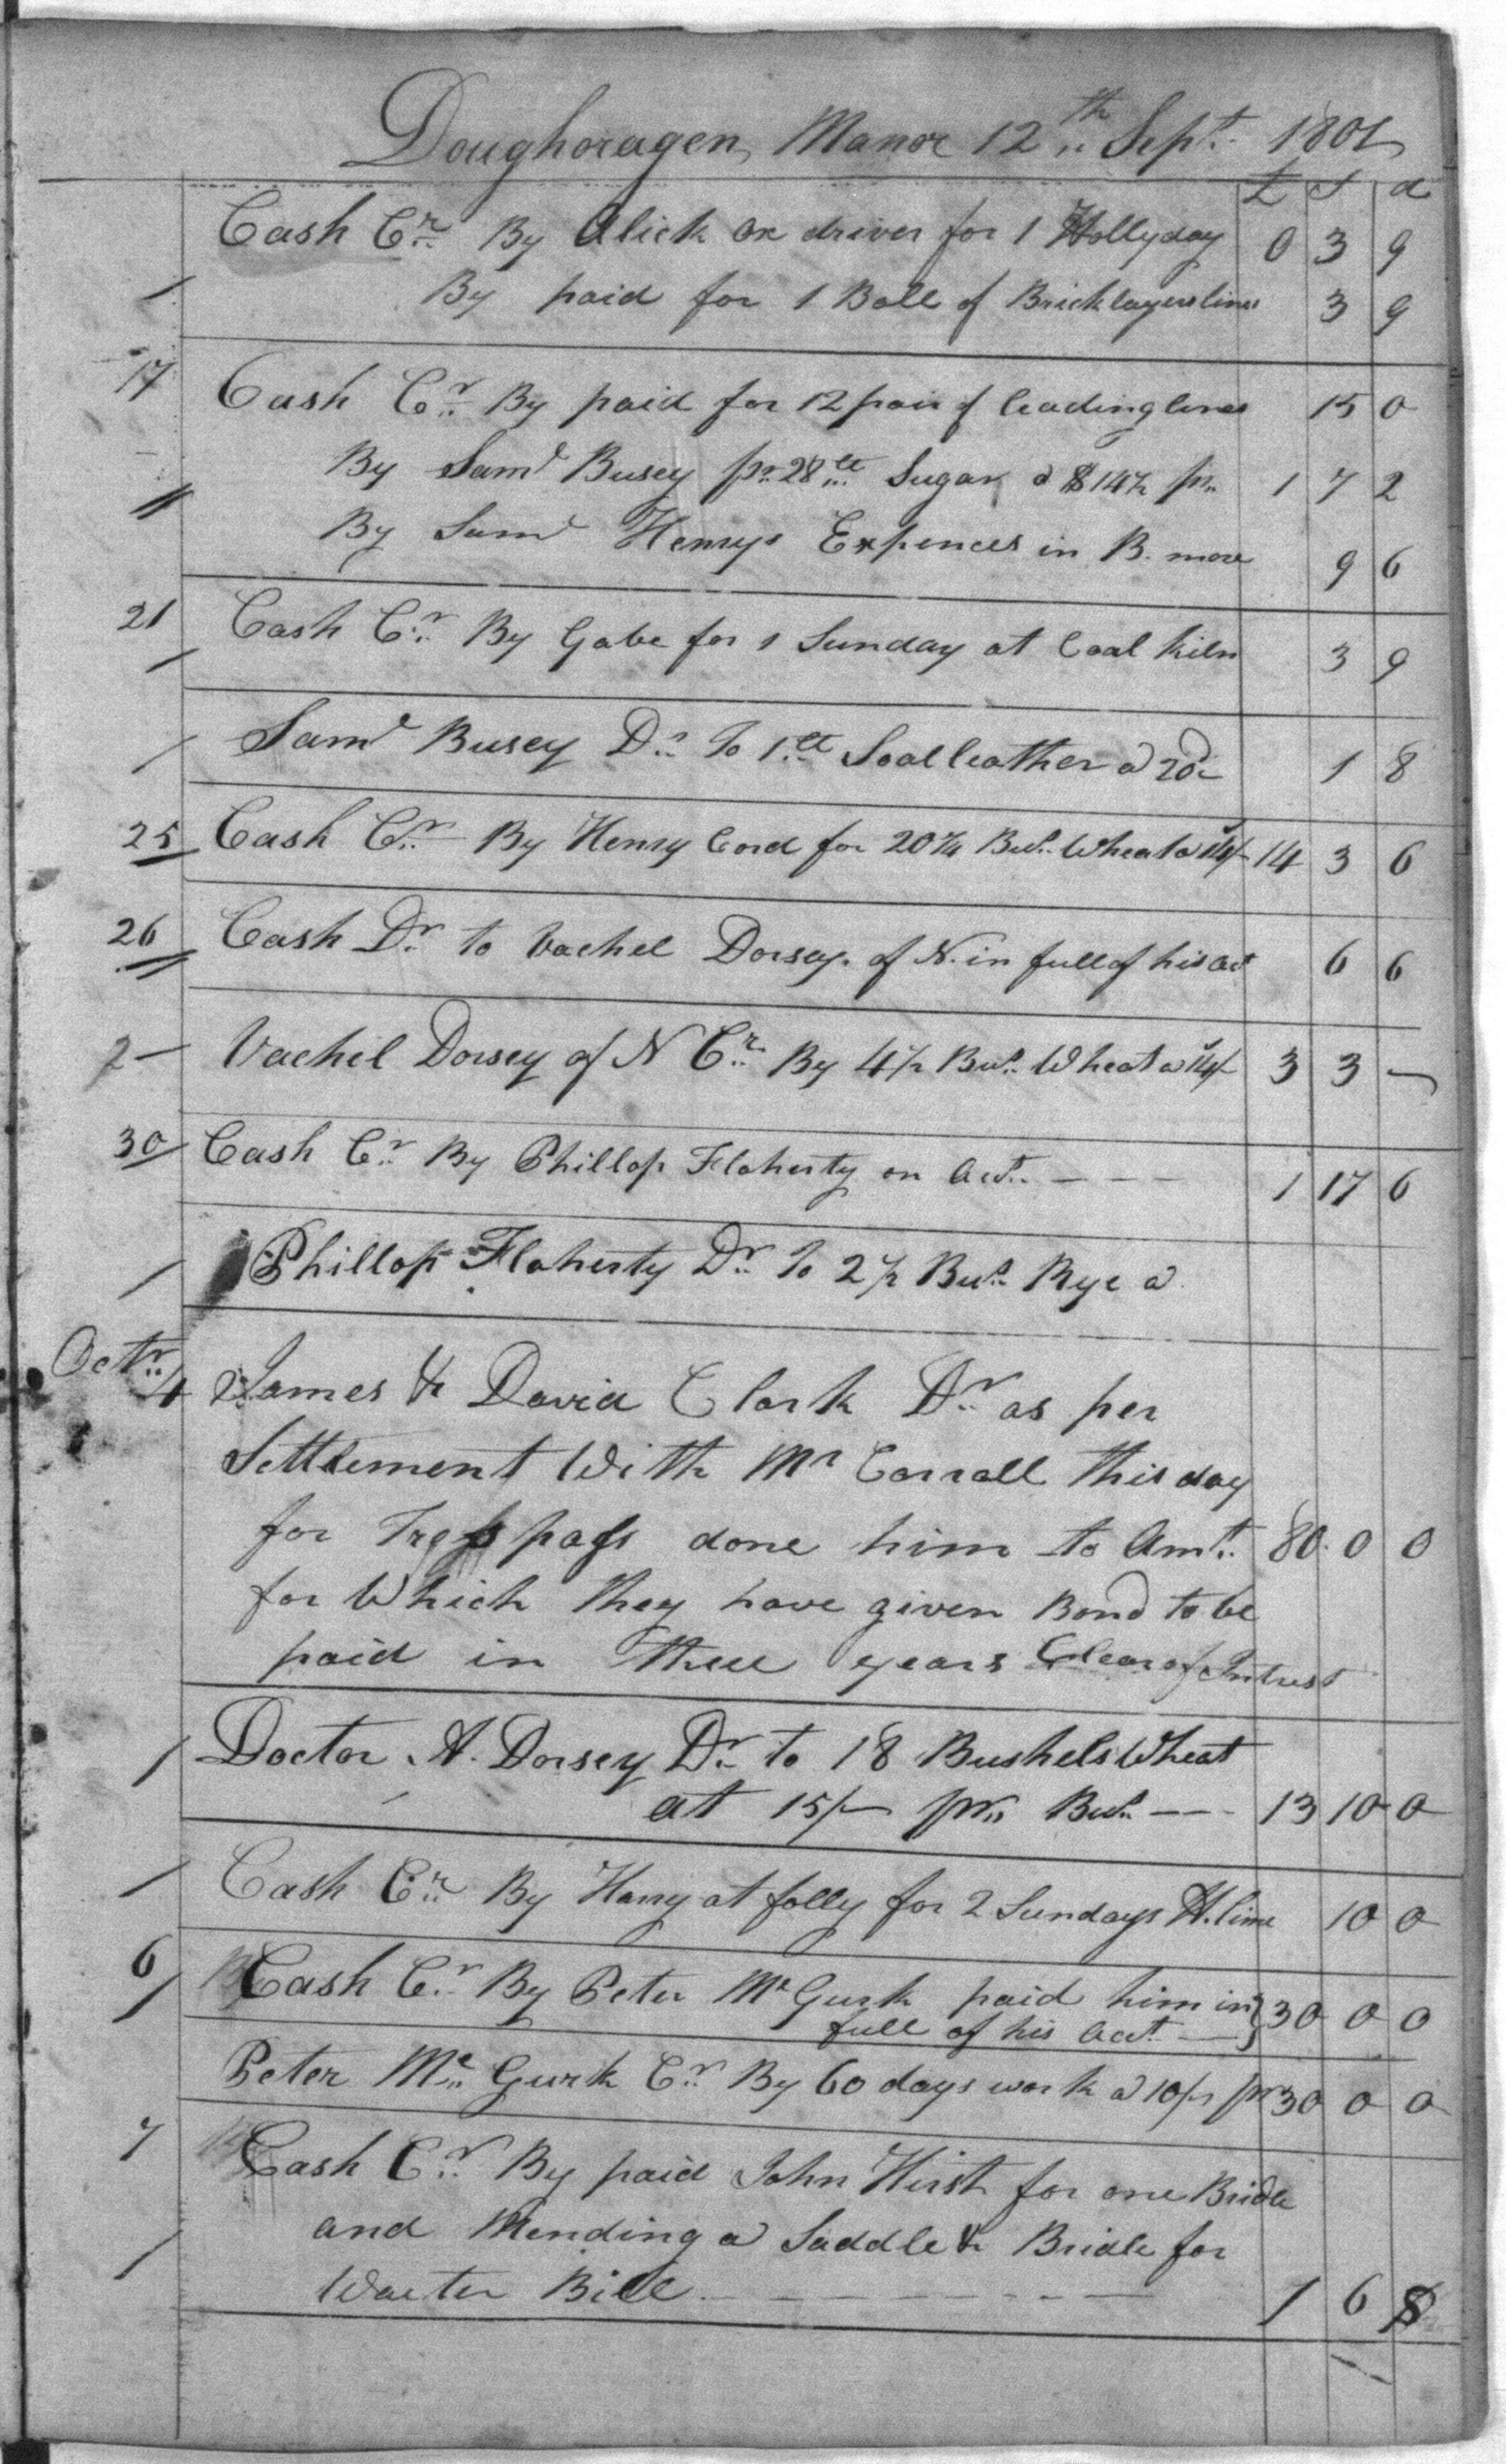 Doughoragen Manor 12th Sept. 1801
£ S d
Cash Cr. By Alick Ox driver for 1 Hollyday 0 3 9
By paid for 1 Ball of Bricklayers lines 3 9
17 Cash Cr. By paid for 12 pair of leading lines 15 0
By Saml Busey pr. 28 lt Sugar a $14½ pr. 1 7 2
By Saml Henrys Expences in B. more 9 6
21 Cash Cr. By Gabe for 1 Sunday at Coal kiln 3 9
Saml Busey Dr. To 1 lt Soal leather a 20d 1 8
25 Cash Cr. By Henry Cord for 20¼ Bus. Wheat a 14/ 14 3 6
26 Cash Dr. to Vachel Dorsey of N. in full of his act 6 6
2 Vachel Dorsey of N Cr. By 4½ Bus. Wheat a 14/ 3 3 —
30 Cash Cr. By Phillop Flaherty on Act. — — — 1 17 6
Phillop Flaherty Dr. To 2½ Bus. Rye a
Octr. 4 James & David Clark Dr. as per
Settlement With Mr Carroll this day
for Tresspass done him to Amt. 80 0 0
for Which they have given Bond to be
paid in three years Clear of Intrest
Doctor A. Dorsey Dr. to 18 Bushels Wheat
at 15/- pr. Bus. — — 13 10 0
Cash Cr. By Harry at folly for 2 Sundays H. lime 10 0
6 Cash Cr. By Peter Mc Gurk paid him in } 30 0 0
full of his Act. —
Peter Mc. Gurk Cr. By 60 days work a 10/- pr 30 0 0
7 Cash Cr. By paid John Hirst for one Bridle
and Mending a Saddle & Bridle for
Waeter Bill — — — — — 1 6 8